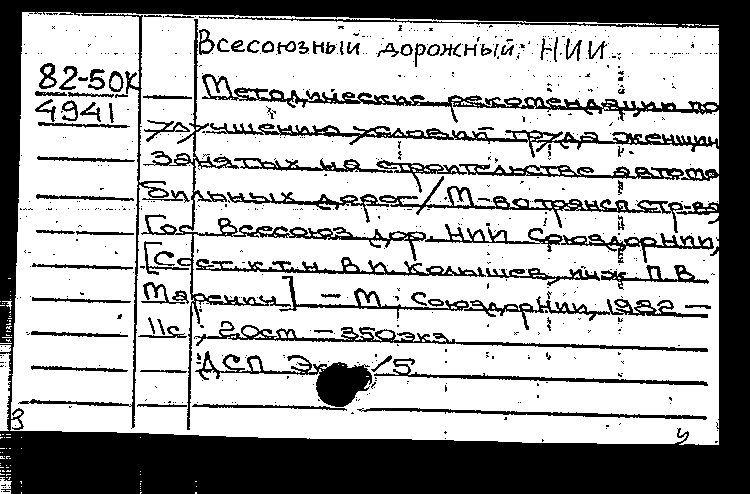 Всесоюзный дорожный НИИ
82-50К
4941
Методические рекомендации по
улучшению условий труда женщин
занятых на строительстве автомо
бильных дорог / М-во трансп. стр-ва,
Гос. Всесоюз. дор. НИИ СоюздорНИИ;
[Сост. к.т.н. В.П. Копышев, инж. П.В.
Маренич] — М.: СоюздорНИИ, 1982 —
11с; 20см — 350экз.
ДСП Экз /5